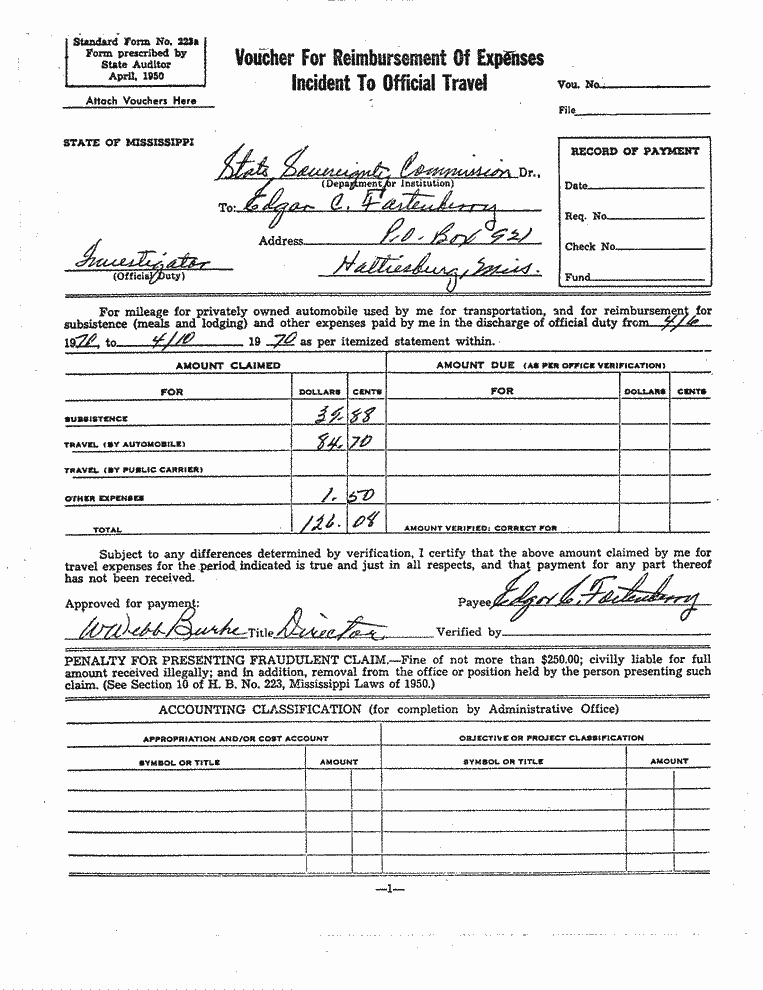 Standard Form No. 223a
Form prescribed by
State Auditor
April, 1950
Attach Vouchers Here
Voucher For Reimbursement Of Expenses
Incident To Official Travel
Vou. No.
File
STATE OF MISSISSIPPI
State Sovereignty Commission Dr.,
(Department or Institution)
To: Edgar C. Fortenberry
Address P.O. Box 921
Investigator
(Official Duty)
Hattiesburg, Miss.
RECORD OF PAYMENT
Date
Req. No.
Check No.
Fund
For mileage for privately owned automobile used by me for transportation, and for reimbursement for
subsistence (meals and lodging) and other expenses paid by me in the discharge of official duty from 4/6
1970, to 4/10 19 70 as per itemized statement within.
AMOUNT CLAIMED AMOUNT DUE (AS PER OFFICE VERIFICATION)
FOR DOLLARS CENTS FOR DOLLARS CENTS
SUBSISTENCE 39.88
TRAVEL (BY AUTOMOBILE) 84.70
TRAVEL (BY PUBLIC CARRIER)
OTHER EXPENSES 1.50
TOTAL 126.08 AMOUNT VERIFIED: CORRECT FOR
Subject to any differences determined by verification, I certify that the above amount claimed by me for
travel expenses for the period indicated is true and just in all respects, and that payment for any part thereof
has not been received.
Approved for payment: Payee Edgar C. Fortenberry
W Webb Burke Title Director Verified by
PENALTY FOR PRESENTING FRAUDULENT CLAIM.—Fine of not more than $250.00; civilly liable for full
amount received illegally; and in addition, removal from the office or position held by the person presenting such
claim. (See Section 10 of H. B. No. 223, Mississippi Laws of 1950.)
ACCOUNTING CLASSIFICATION (for completion by Administrative Office)
APPROPRIATION AND/OR COST ACCOUNT OBJECTIVE OR PROJECT CLASSIFICATION
SYMBOL OR TITLE AMOUNT SYMBOL OR TITLE AMOUNT
—1—